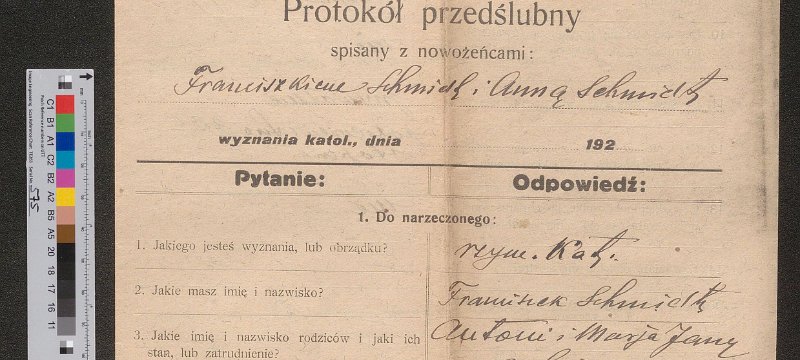 Protokół przedślubny
spisany z nowożeńcami:
Franciszkiem Schmidt i Anną Schmidt
wyznania katol., dnia 192
Pytanie: Odpowiedź:
1. Do narzeczonego:
1. Jakiego jesteś wyznania, lub obrządku? rzym. Kat.
2. Jakie masz imię i nazwisko? Franciszek Schmidt
3. Jakie imię i nazwisko rodziców i jaki ich Antoni i Marja
stan, lub zatrudnienie?
C1 B1 A1 C2 B2 A2 B5 A5 20 18 17 16 11
575